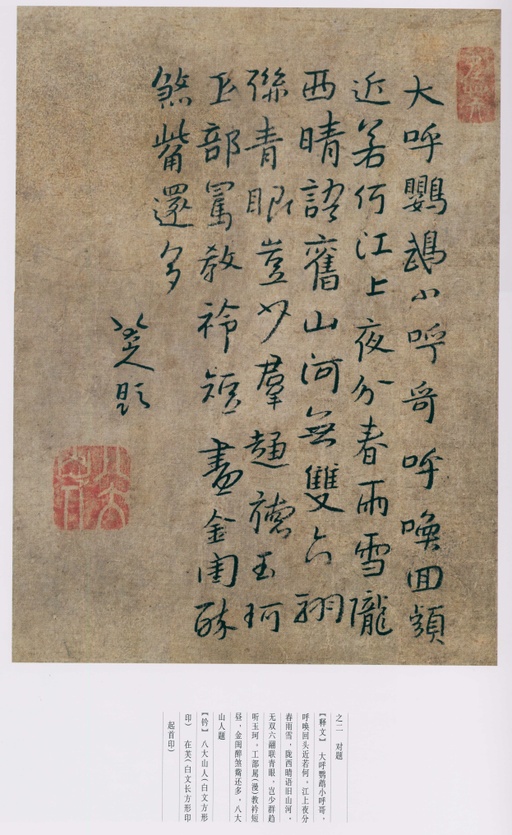 大呼鸚鵡小呼哥呼喚回頭
近若何江上夜分春雨雪隴
西晴語舊山河無雙六翮
聯青眼豈少羣趨聽玉珂
工部罵教衿短晝金閨醉
煞觜還多
八大山人題
之二 对题
【释文】 大呼鹦鹉小呼哥，
呼唤回头近若何。江上夜分
春雨雪，陇西晴语旧山河。
无双六翮联青眼，岂少群趋
听玉珂。工部骂(漫)教衿短
昼，金闺醉煞觜还多。八大
山人题
【钤】 八大山人(白文方形
印) 在芙(白文长方形印
起首印)